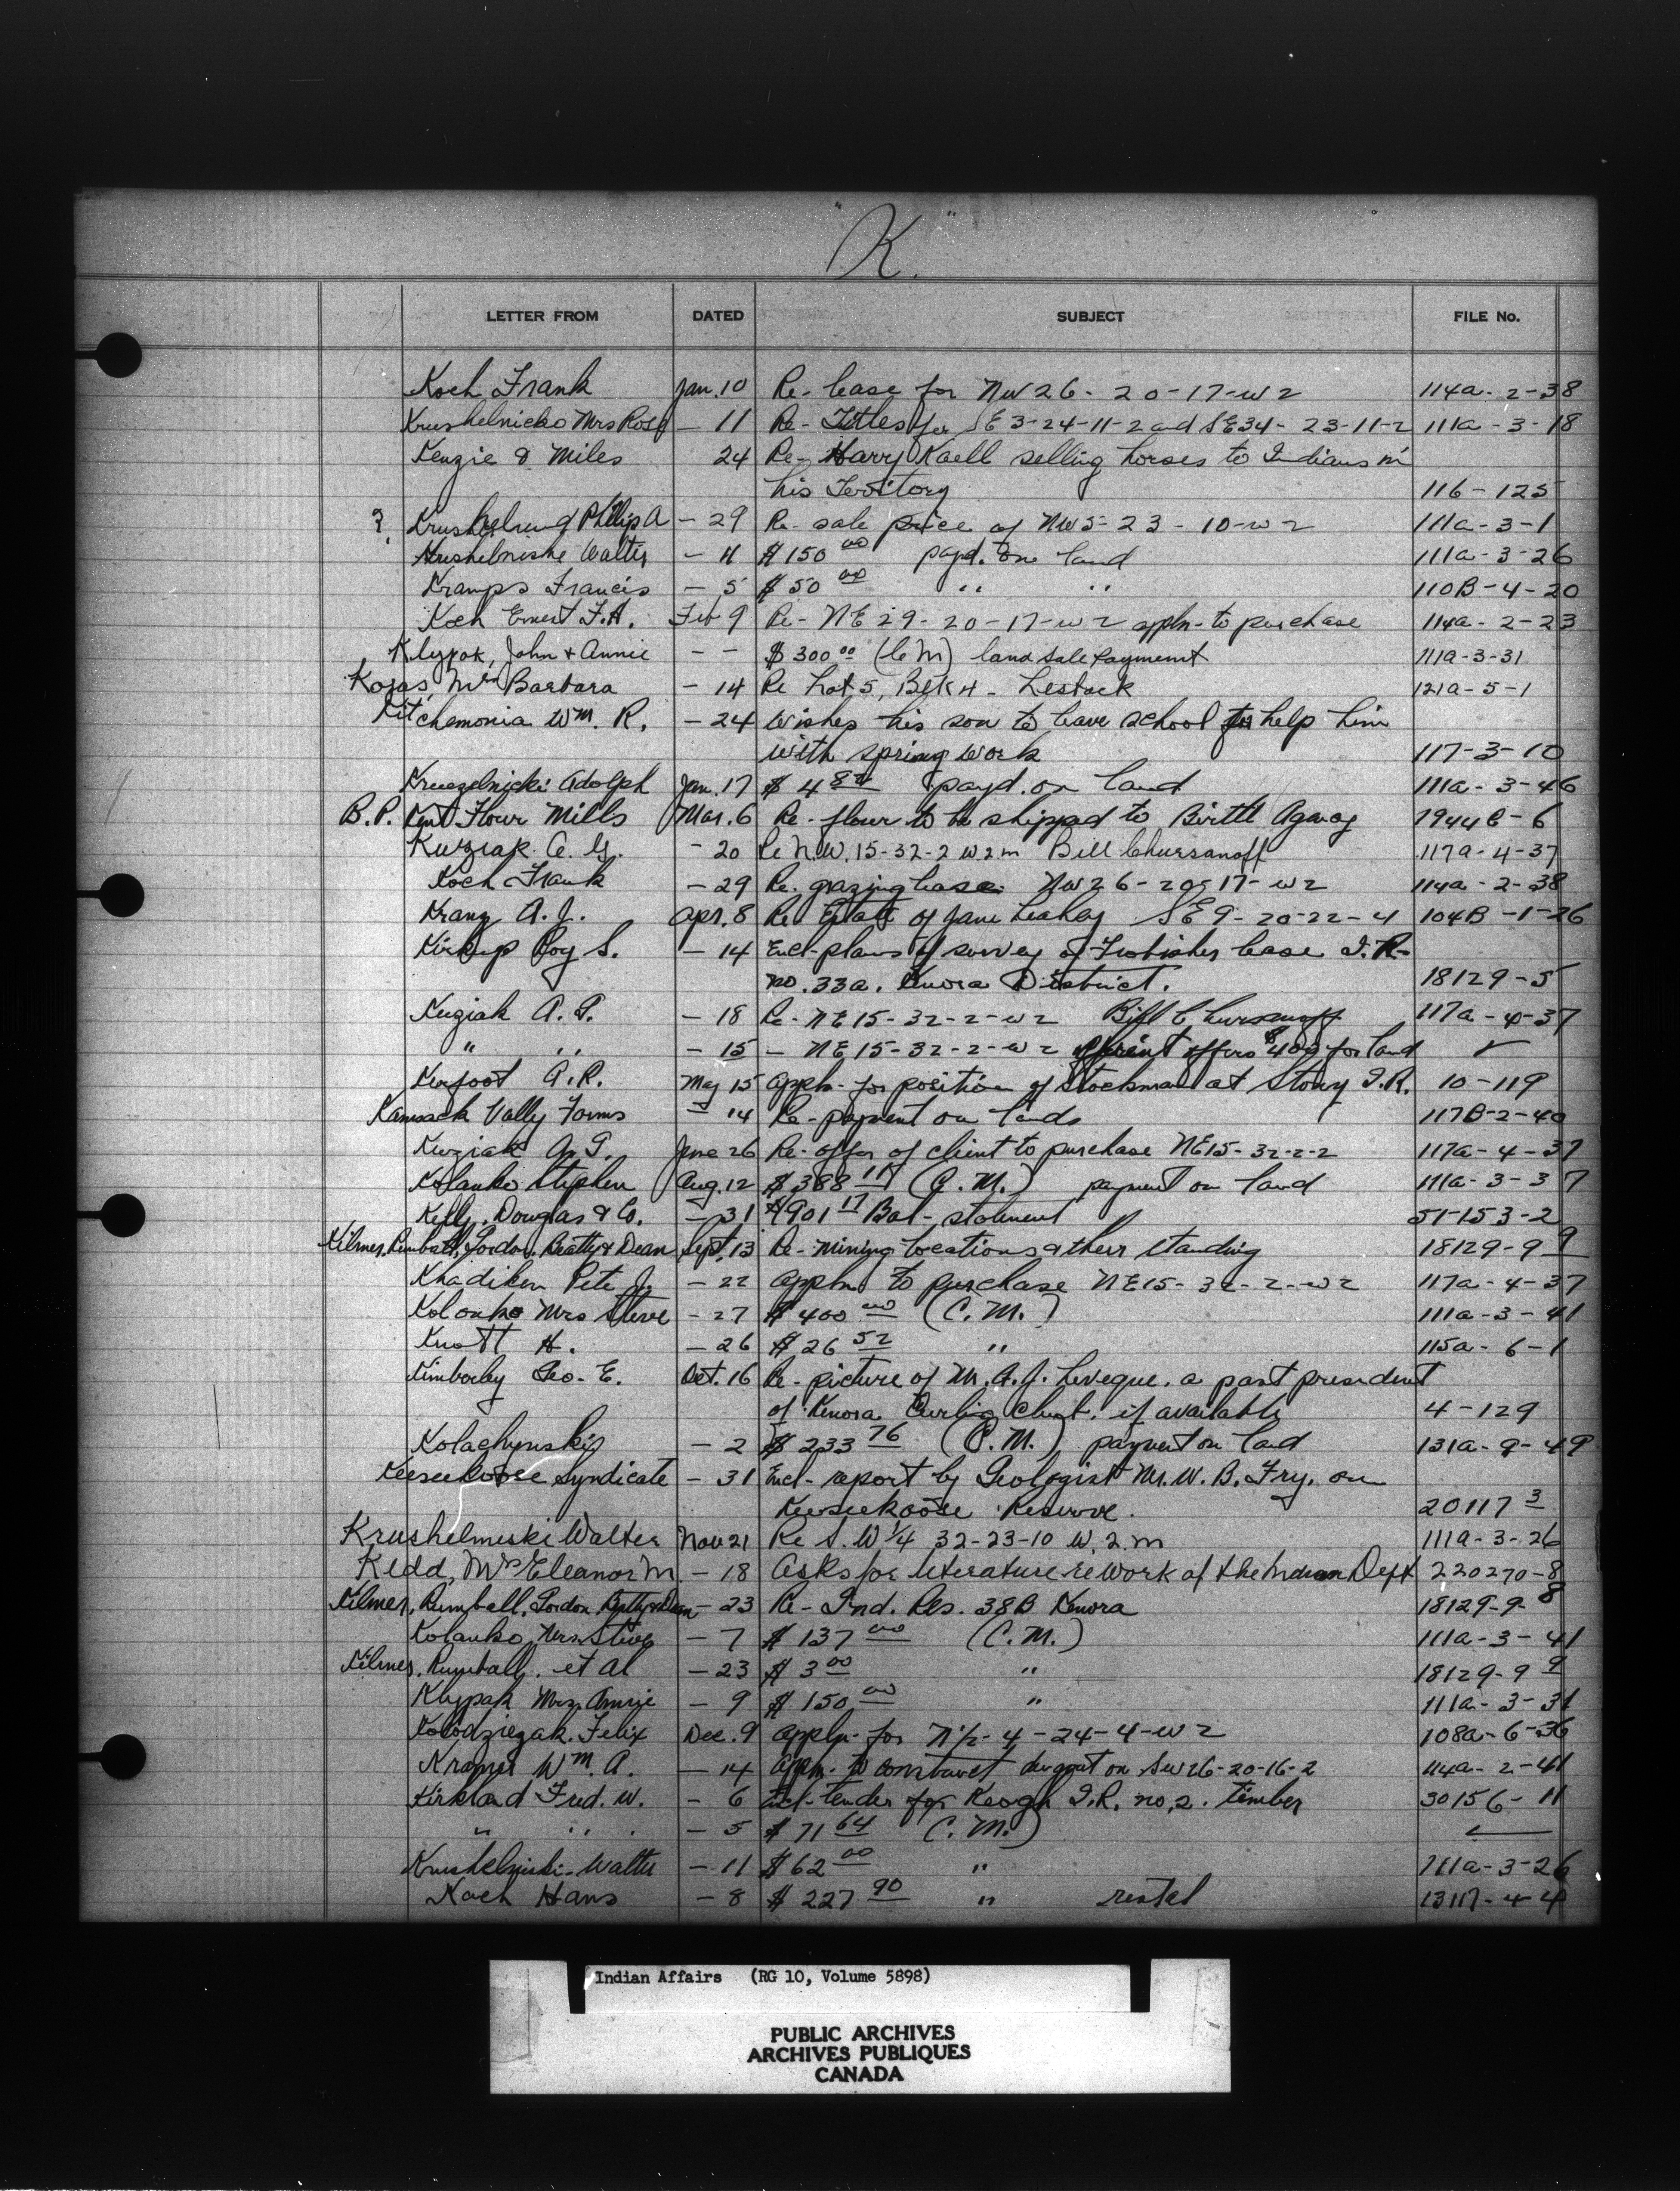 "K"
LETTER FROM DATED SUBJECT FILE No.
Koch Frank Jan. 10 Re- lease for NW 26- 20-17-w2 114a-2-38
Krushelnicko Mrs Rose - 11 Re- Titles for SE 3-24-11-2 and SE34- 23-11-2 111a-3-18
Kenzie & Miles 24 Re- Harry Kaell selling horses to Indians in
his Territory 116-125
? Phillip A - 29 Re- sale price of NW5-23-10-w2 111a-3-1
Walter - 11 $150 00 payt. on land 111a-3-26
Kramps Francis - 5 $50 00 " " 110B-4-20
Koch Ernest F.A. Feb 9 Re- NE 29-20-17-w2 appln- to purchase 114a-2-23
Klypak, John & Annie - - $300 00 (C M) land sale payment 111a-3-31
Kozas, Mrs Barbara - 14 Re Lot 5, Blk 4 - Lestock 121a-5-1
Kitchemonia Wm. R. - 24 Wishes his son to leave school to help him
with spring work 117-3-10
Kruezelnicki Adolph Jan. 17 $4 payd. on land 111a-3-46
B.P. Kent Flour Mills Mar. 6 Re- flour to be shipped to Birtle Agency 1944C-6
Kuziak A. G. - 20 Re N.W. 15-32-2 W2m Bill Chursanoff 117a-4-37
Koch Frank - 29 Re. grazing lease NW26-20-17-w2 114a-2-38
Kranz A. J. Apr. 8 Re Estate of Jane Leahey SE 9-20-22-4 104B-1-26
Kirkup Roy S. - 14 Encl- plans of survey of Frobisher lease I.R-
no. 33a. Kenora District. 18129-5
Kuziak A. G. - 18 Re- NE15-32-2-w2 Bill Chursanoff 117a-4-37
" " - 15 - NE15-32-2-w2 offers $400 for land ✓
Kerfoot A.R. May 15 Appln- for position of Stockman at Stony I.R. 10-119
Kamsack Vally Farms - 14 Re- payment on lands 117B-2-40
Kuziak A. G. June 26 Re- offer of client to purchase NE15-32-2-2 117a-4-37
Kolanko Stephen Aug. 12 $388 11 (C. M.) payment on land 111a-3-37
Kelly, Douglas & Co. - 31 $901 17 Bal- statement 51-153-2
Kilmer, Rumball, Gordon, Beatty & Dean Sept. 13 Re- Mining locations & their standing 18129-9 9
Khadiken Pete J. - 22 Appln to purchase NE15-32-2-w2 117a-4-37
Kolonko Mrs Steve - 27 $400 00 (C. M.) 111a-3-41
Knott H. - 26 $26 52 " 115a-6-1
Kimberley Geo. E. Oct. 16 Re- picture of M. A. J. Leveque. a past president
of Kenora Curling Club. if available 4-129
Kolachynski - 2 $233 76 (C. M.) payment on land 131a-9-49
Keeseekoose Syndicate - 31 Encl- report by Geologist Mr. W. B. Fry. on
Keeseekoose Reserve. 20117 3
Krushelmeski Walter Nov 21 Re S.W 1/4 32-23-10 W.2.m 111a-3-26
Kedd, Mrs Eleanor M. - 18 Asks for literature re work of the Indian Dept 220270-8
Kilmer, Rumball, Gordon Beatty & Dean - 23 Re- Ind. Res. 38B Kenora 18129-9-8
Kolanko, Mrs. Steve - 7 $137 00 (C. M.) 111a-3-41
Kilmer, Rumball. et al - 23 $3 00 " 18129-9 9
Klypak Mrs Annie - 9 $150 00 " 111a-3-31
Kolodziezak. Felix Dec. 9 Appln- for N1/2-4-24-4-w2 108a-6-36
Kramer Wm. A. - 14 Appn. to construct dugout on SW26-20-16-2 114a-2-41
Kirkland Fred. W. - 6 Encl- tender for Keogh I.R. no. 2. timber 30156-11
" " - 5 $71 64 (C. M.)
Krushelniski- Walter - 11 $62 00 " 111a-3-26
Koch Hans - 8 $227 90 " rental 13117-4-4
Indian Affairs (RG 10, Volume 5898)
PUBLIC ARCHIVES
ARCHIVES PUBLIQUES
CANADA